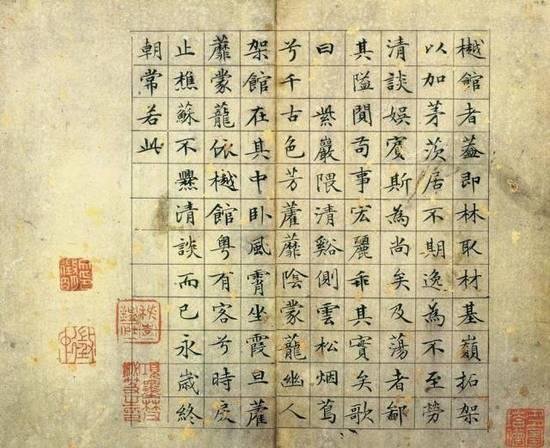 樾館者葢即林取材基嶺拓架
以加茅茨居不期逸為不至勞
清談娛賓斯為尚矣及蕩者鄙
其隘閴苟事宏麗乖其實矣歌
曰 紫巖隈清谿側雲松烟蔦
兮千古色芳藿蘼陰蒙龍幽人
架館在其中卧風霄坐霞旦藿
蘼蒙龍依樾館粵有客兮時戾
止樵蘇不爨清談而已永歲終
朝常若此